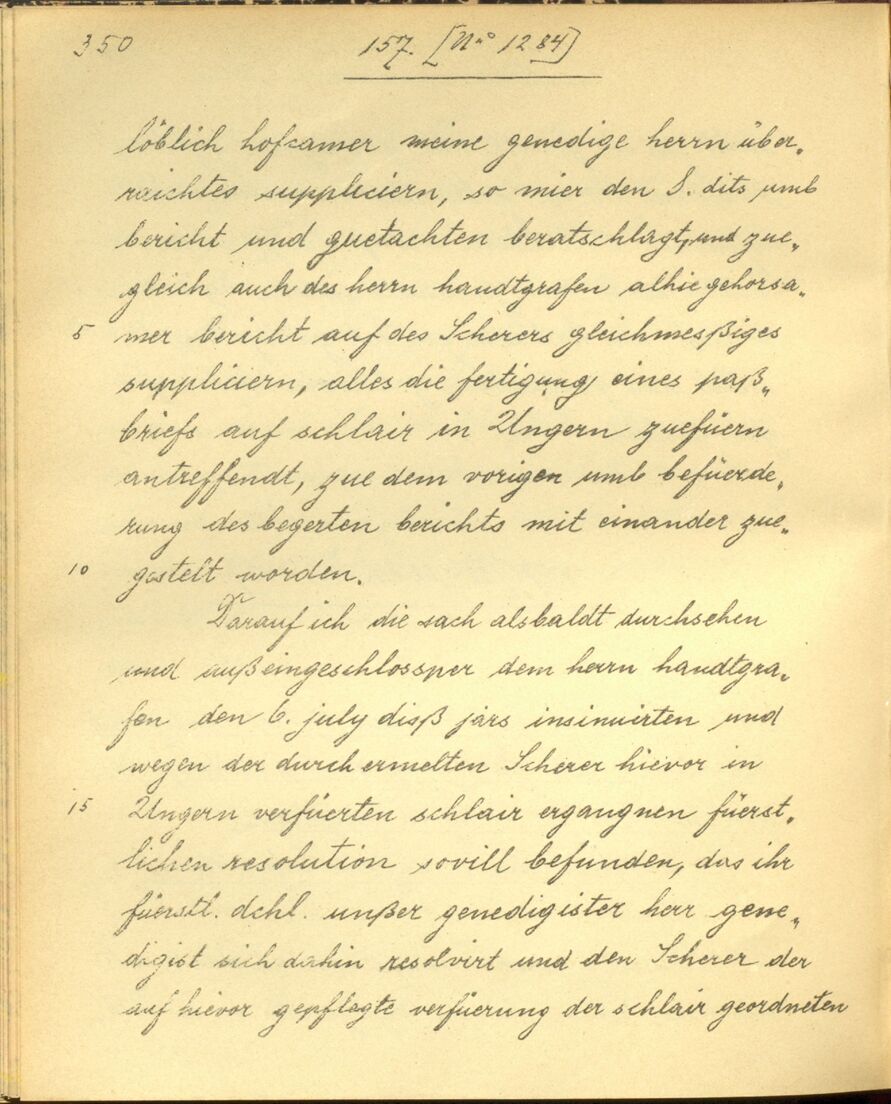 350 157. [No 1284]
löblich hofcamer meine genedige herrn über„
raichtes suppliciern, so mier den 8. dits umb
bericht und guetachten beratschlagt, und zue„
gleich auch des herrn handtgrafen alhie gehorsa„
5 mer bericht auf des Scherers gleichmesßiges
suppliciern, alles die fertigung eines paß„
briefs auf schlair in Ungern zuefüern
antreffendt, zue dem vorigen umb befüerde„
rung des begerten berichts mit einander zue„
10 gestelt worden.
Darauf ich die sach alsbaldt durchsehen
und außeingeschlossner dem herrn handtgra„
fen den 6. july disß jars insinuirten und
wegen der durch ermelten Scherer hievor in
15 Ungern verfüerten schlair ergangnen füerst„
lichen resolution sovill befunden, das ihr
füerstl. dchl. unßer genedigister herr gene„
digist sich dahin resolvirt und den Scherer der
auf hievor gepflegte verfüerung der schlair geordneten